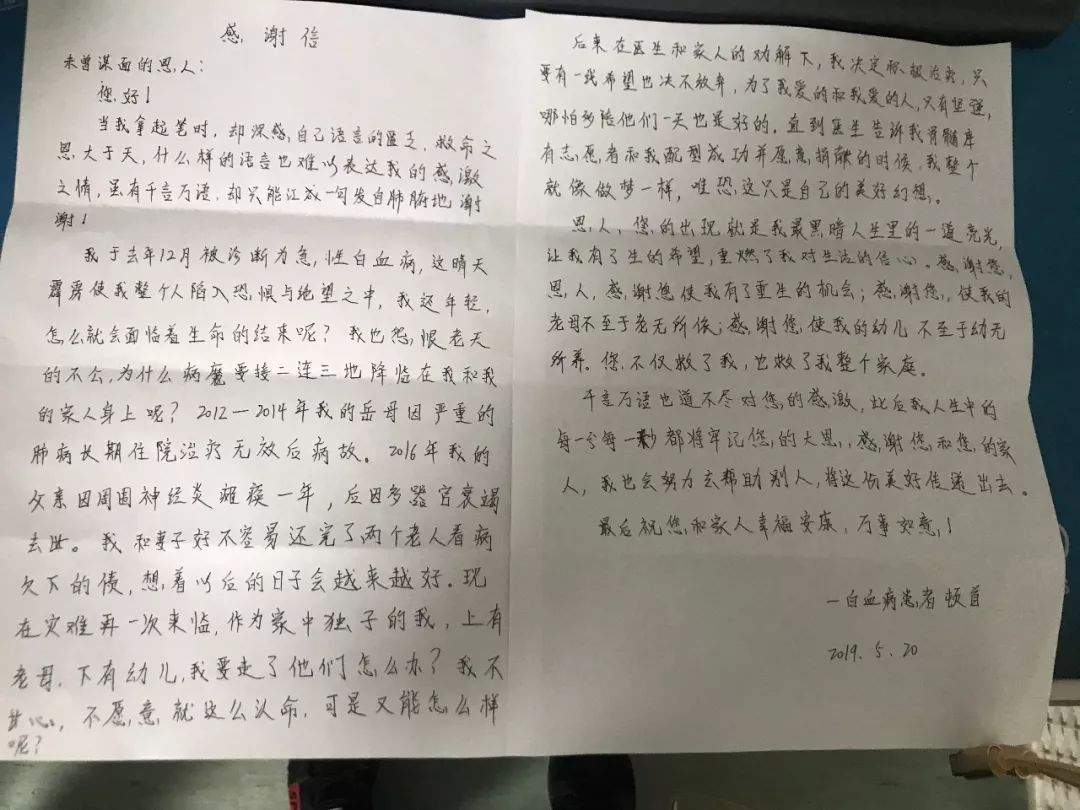 感谢信
未曾谋面的恩人：
您好！
当我拿起笔时，却深感自己语言的匮乏．救命之
恩大于天，什么样的语言也难以表达我的感激
之情，虽有千言万语．却只能汇成一句发自肺腑地：谢
谢！
我于去年12月被诊断为急性白血病，这晴天
霹雳使我整个人陷入恐惧与绝望之中，我还年轻，
怎么就会面临着生命的结束呢？我也怨恨老天
的不公，为什么病魔要接二连三地降临在我和我
的家人身上呢？2012—2014年我的岳母因严重的
肺病长期住院治疗无效后病故。2016年我的
父亲因周围神经炎瘫痪一年，后因多器官衰竭
去世。我和妻子好不容易还完了两个老人看病
欠下的债，想着以后的日子会越来越好．现
在灾难再一次来临，作为家中独子的我，上有
老母．下有幼儿，我要走了他们怎么办？我不
甘心，不愿意就这么认命，可是又能怎么样
呢？
后来在医生和家人的劝解下，我决定积极治疗，只
要有一线希望也决不放弃，为了我爱的和我爱的人，只有坚强，
哪怕多陪他们一天也是好的．直到医生告诉我骨髓库
有志愿者和我配型成功并愿意捐献的时候，我整个
就像做梦一样，唯恐这只是自己的美好幻想．
恩人，您的出现就是我最黑暗人生里的一道亮光，
让我有了生的希望，重燃了我对生活的信心。感谢您，
恩人，感谢您使我有了重生的机会；感谢您，使我的
老母不至于老无所依；感谢您使我的幼儿不至于幼无
所养。您不仅救了我，也救了我整个家庭。
千言万语也道不尽对您的感激，此后我人生中的
每一分每一秒都将牢记您的大恩，感谢您和您的家
人，我也会努力去帮助别人，将这份美好传递出去。
最后祝您和家人幸福安康，万事如意！
一白血病患者 顿首
2019．5．20